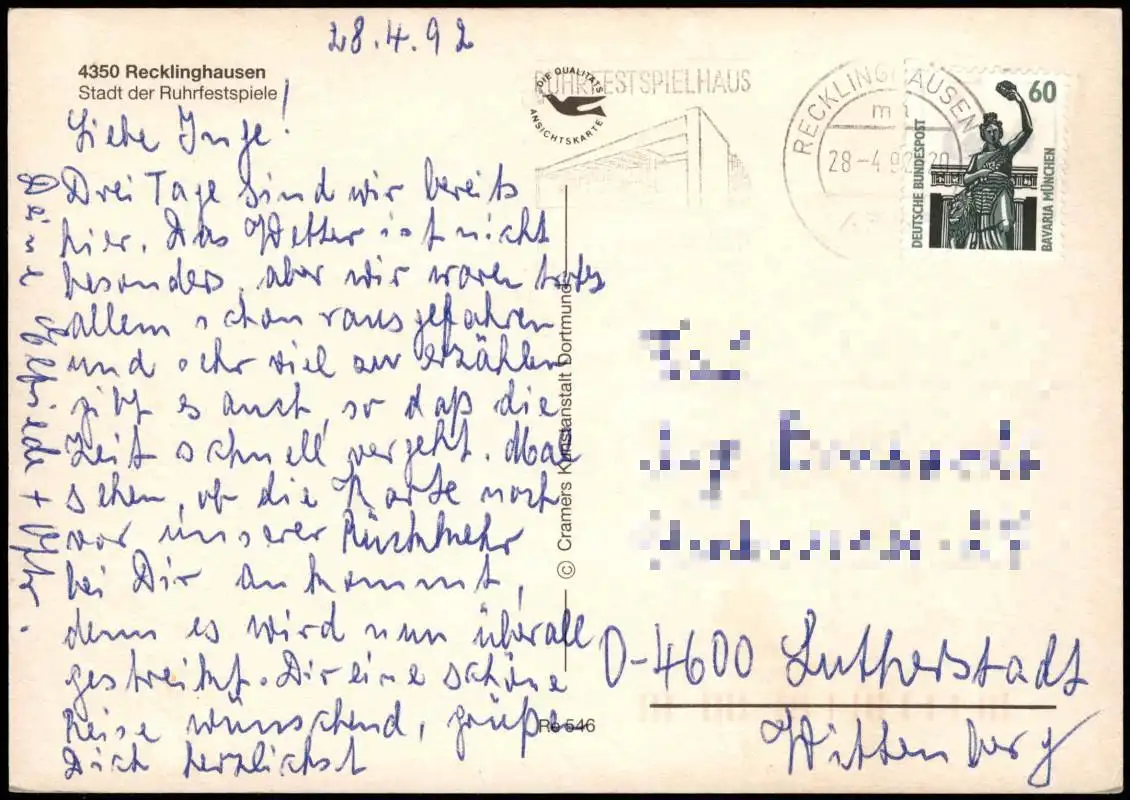 28.4.92
4350 Recklinghausen
Stadt der Ruhrfestspiele
Liebe Inge!
Drei Tage sind wir bereits
hier. Das Wetter ist nicht
besonders, aber wir waren trotz
allem schon rausgefahren
und sehr viel zu erzählen
gibt es auch, so daß die
Zeit schnell vergeht. Mal
sehen, ob die Karte noch
vor unserer Rückkehr
bei Dir ankommt,
denn es wird nun überall
gestreikt. Dir eine schöne
Reise wünschend, grüßen
Dich herzlichst
Deine Elfriede +
DIE QUALITÄTS
ANSICHTSKARTE
RUHRFESTSPIELHAUS
RECKLINGHAUSEN
28-4.92-20
60
DEUTSCHE BUNDESPOST
BAVARIA MÜNCHEN
© Cramers Kunstanstalt Dortmund
Re 546
D-4600 Lutherstadt
Wittenberg